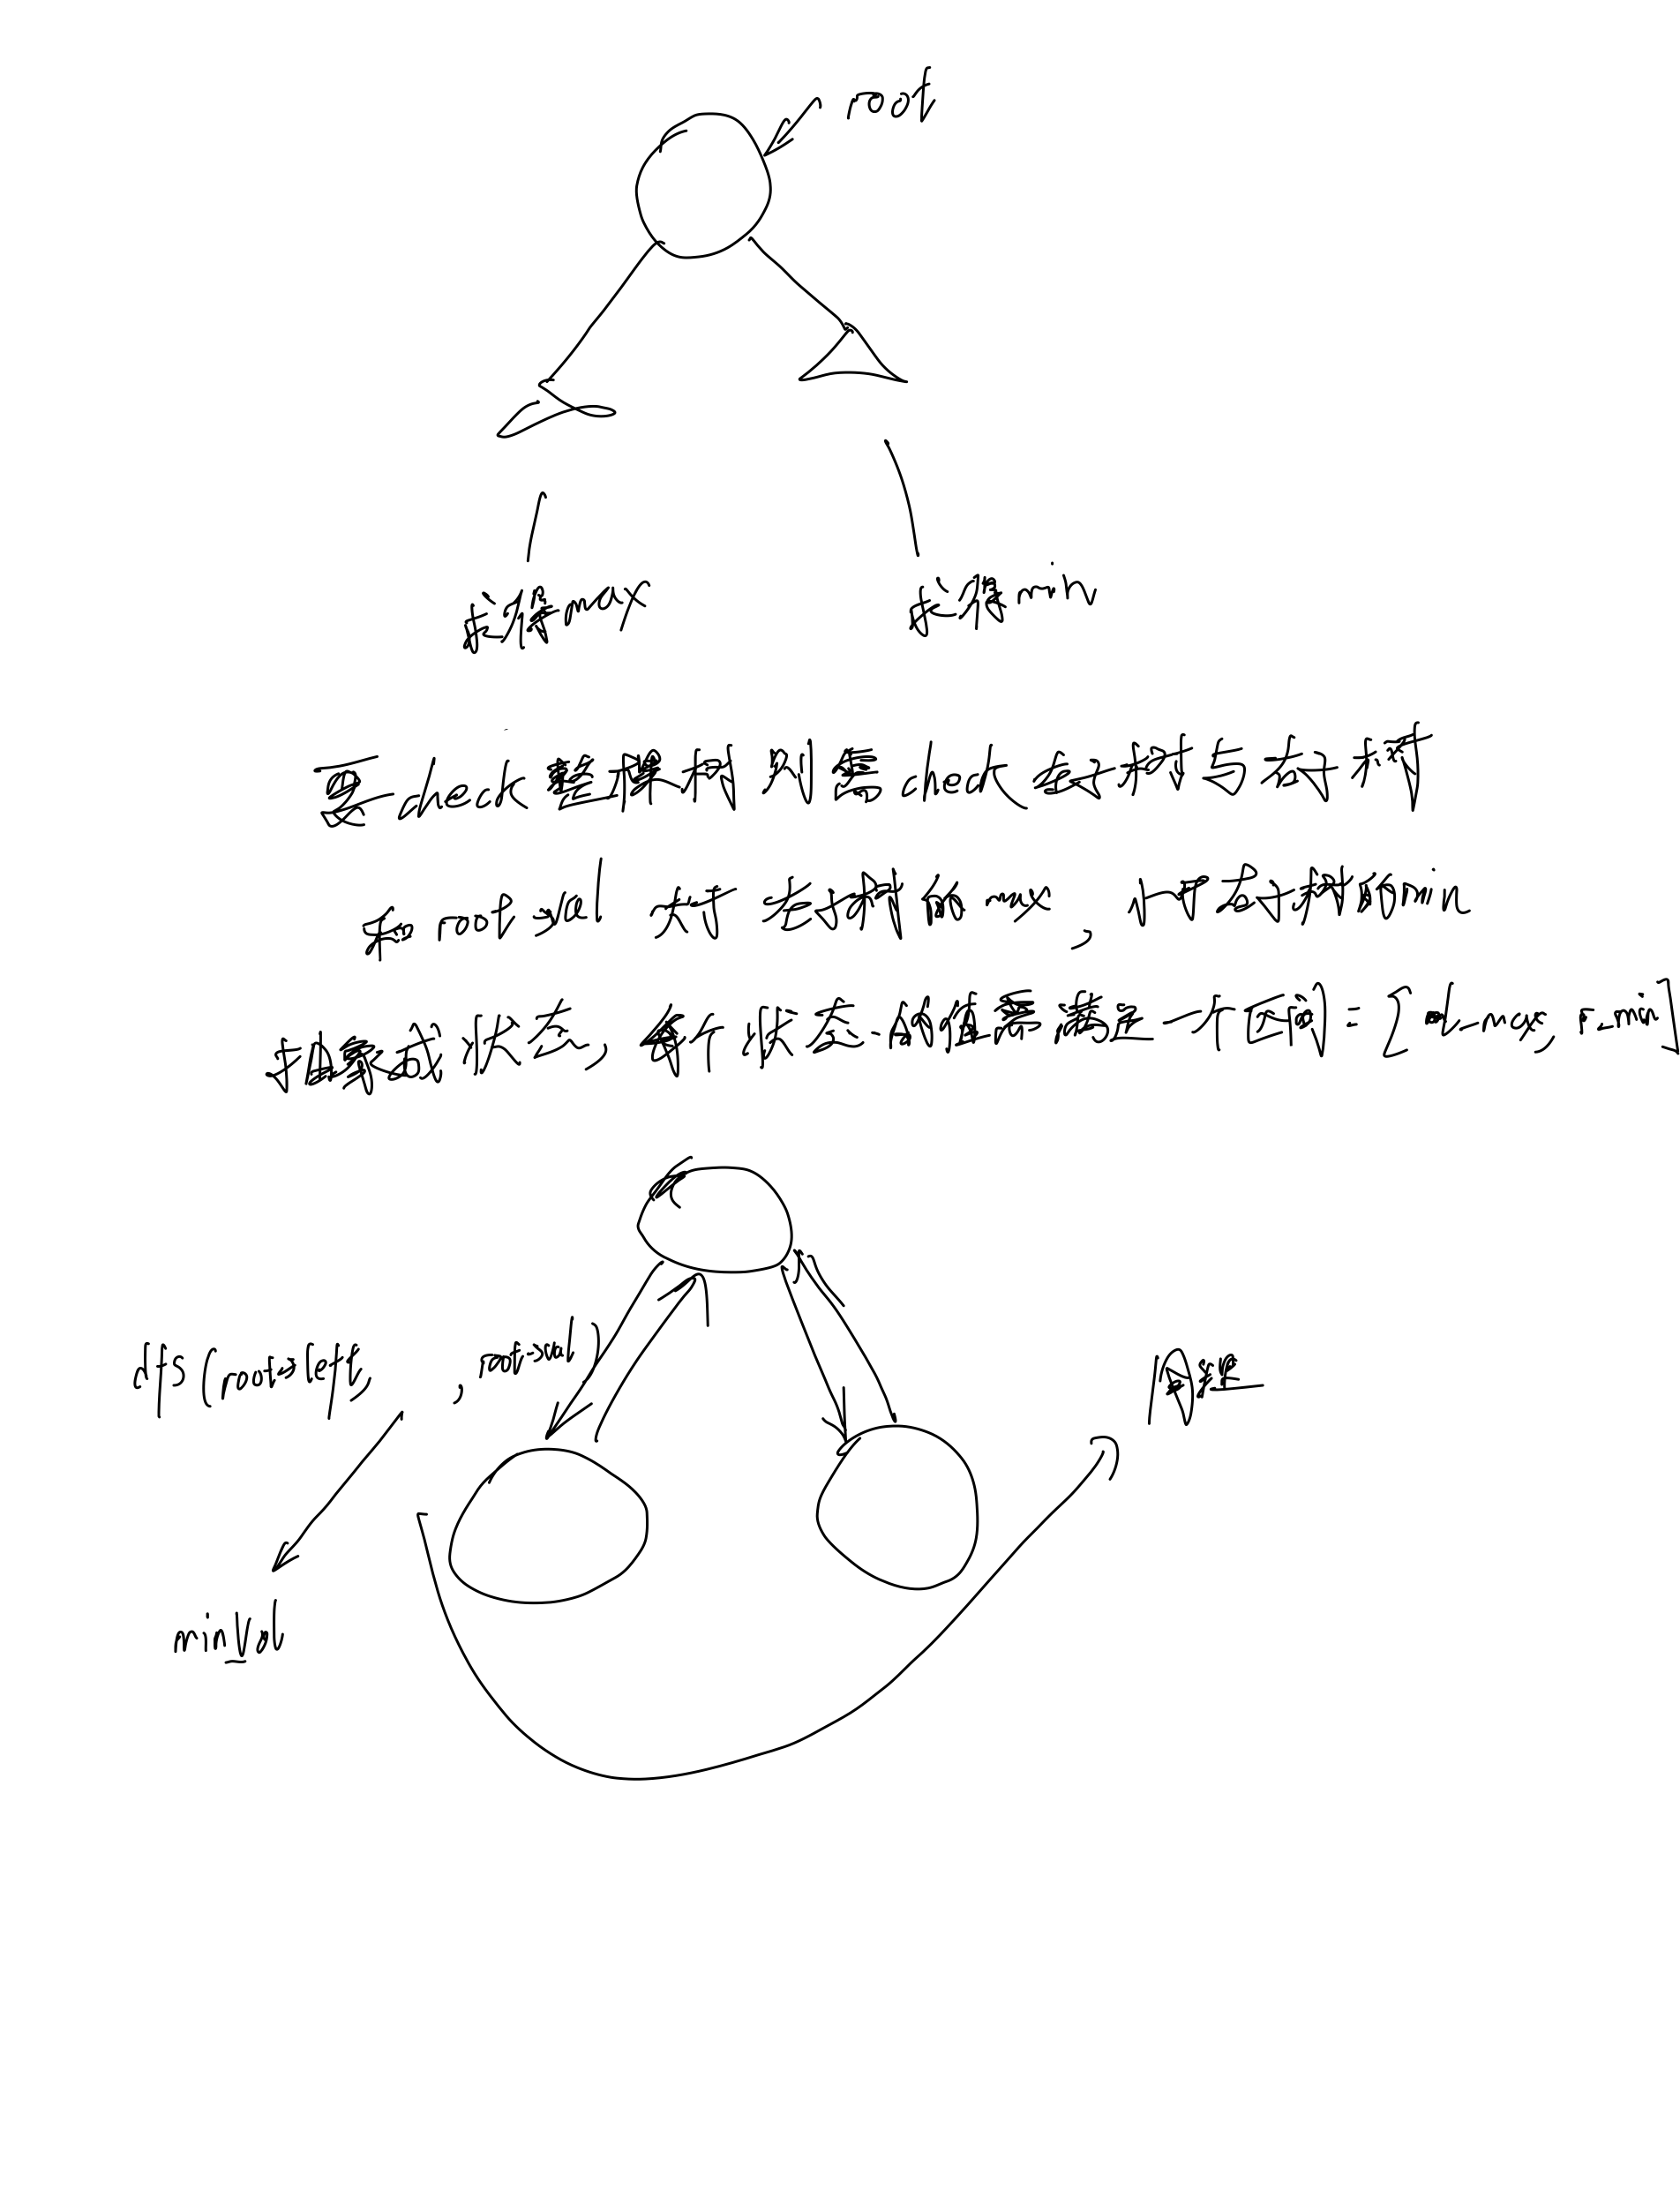 root
求得max
求得min
要check整棵树 则需check左子树与右子树
和root->val 大于左子树的max,小于右子树的min
抽象成状态,每个状态的值要满足一个区间=[l_max, r_min]
dfs(root->left, , root->val)
同理
minVal